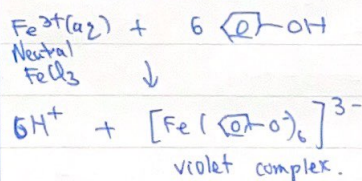 Fe³⁺(aq) + 6 -OH
Neutral
FeCl₃ ↓
6H⁺ + [Fe(-O⁻)₆]³⁻
violet complex.